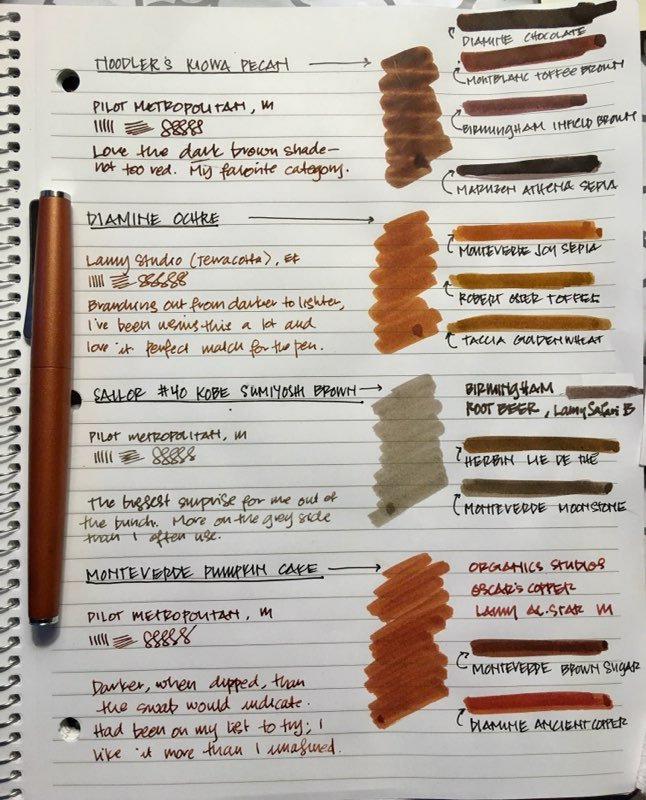 NOODLER'S KIOWA PECAN
DIAMINE CHOCOLATE
MONTBLANC TOFFEE BROWN
PILOT METROPOLITAN, M
BIRMINGHAM INFIELD BROWN
Love the dark brown shade—
not too red. My favorite category.
MARUZEN ATHENA SEPIA
DIAMINE OCHRE
MONTEVERDE JOY SEPIA
Lamy Studio (Terracotta), EF
ROBERT OSTER TOFFEE
Branching out from darker to lighter,
I've been using this a lot and
love it. Perfect match for the pen.
TACCIA GOLDEN WHEAT
SAILOR #40 KOBE SUMIYOSHI BROWN
BIRMINGHAM
ROOT BEER, Lamy Safari B
PILOT METROPOLITAN, M
HERBIN LIE DE THÉ
The biggest surprise for me out of
the bunch. More on the grey side
than I often use.
MONTEVERDE MOONSTONE
MONTEVERDE PUMPKIN CAKE
ORGANICS STUDIOS
OSCAR'S COPPER
LAMY AL-STAR M
PILOT METROPOLITAN, M
MONTEVERDE BROWN SUGAR
Darker, when dipped, than
the swab would indicate.
Had been on my list to try; I
like it more than I imagined.
DIAMINE ANCIENT COPPER